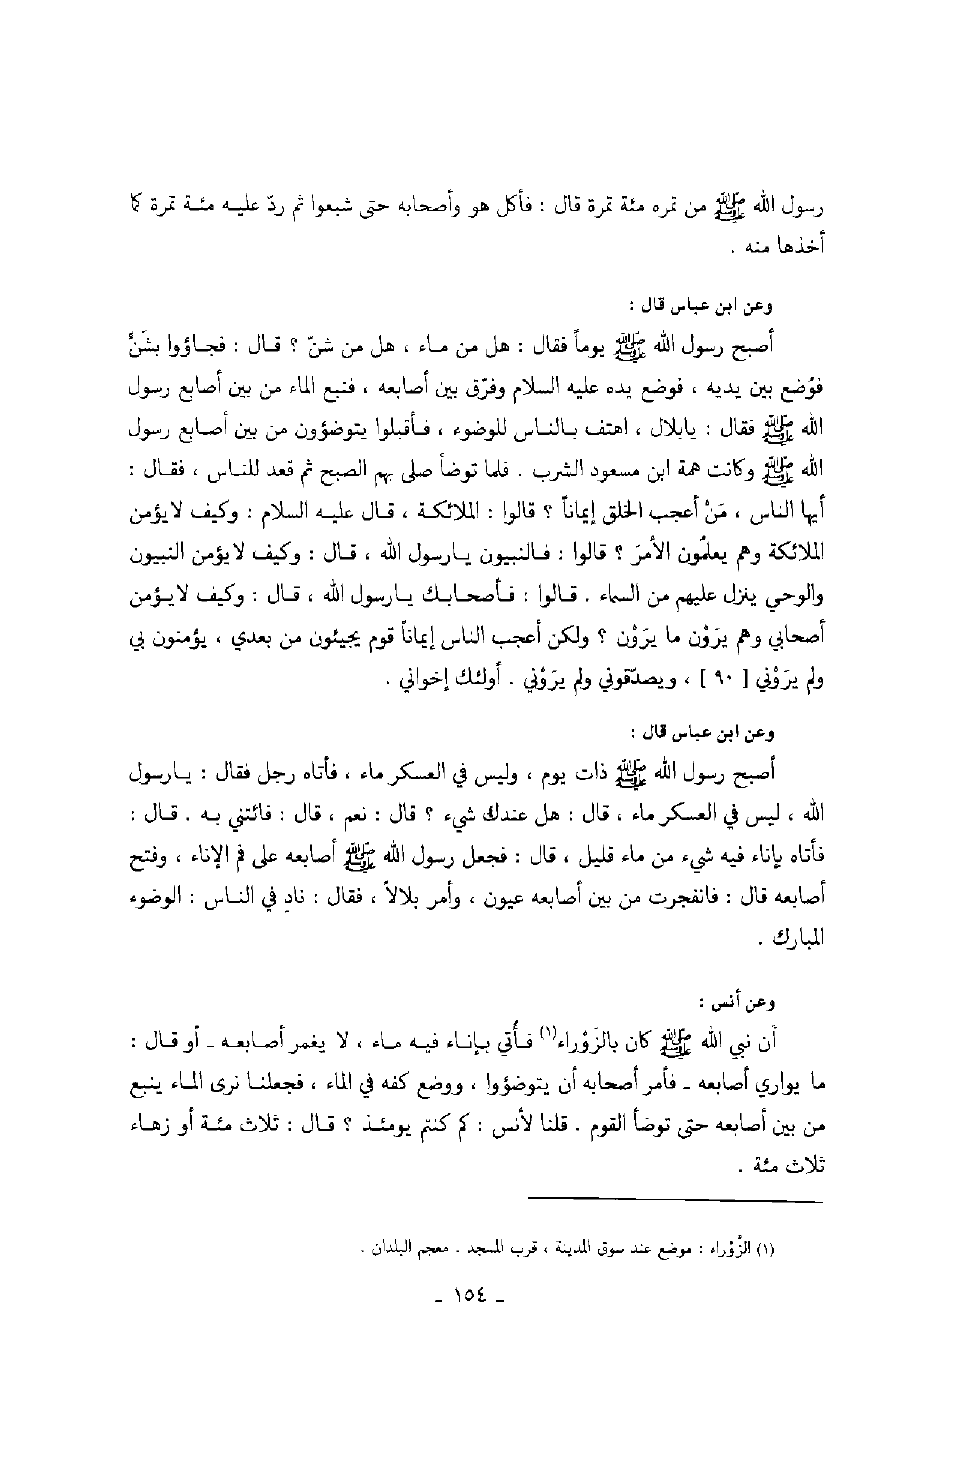 رسول الله ﷺ من تمره مئة تمرة قال : فأكل هو وأصحابه حتى شبعوا ثم ردّ عليه مئة تمرة كما
أخذها منه .
وعن ابن عباس قال :
أصبح رسول الله ﷺ يوماً فقال : هل من ماء ، هل من شنّ ؟ قال : فجاؤوا بشَنٍّ
فوُضع بين يديه ، فوضع يده عليه السلام وفرّق بين أصابعه ، فنبع الماء من بين أصابع رسول
الله ﷺ فقال : يابلال ، اهتف بالناس للوضوء ، فأقبلوا يتوضؤون من بين أصابع رسول
الله ﷺ وكانت همة ابن مسعود الشرب . فلما توضأ صلى بهم الصبح ثم قعد للناس ، فقال :
أيها الناس ، مَنْ أعجب الخلق إيماناً ؟ قالوا : الملائكة ، قال عليه السلام : وكيف لايؤمن
الملائكة وهم يعلمُون الأمرَ ؟ قالوا : فالنبيون يارسول الله ، قال : وكيف لايؤمن النبيون
والوحي ينزل عليهم من السماء . قالوا : فأصحابك يارسول الله ، قال : وكيف لايؤمن
أصحابي وهم يرَوْن ما يرَوْن ؟ ولكن أعجب الناس إيماناً قوم يجيئون من بعدي ، يؤمنون بي
ولم يرَوْني [ ٩٠ ] ، ويصدّقوني ولم يرَوْني . أولئك إخواني .
وعن ابن عباس قال :
أصبح رسول الله ﷺ ذات يوم ، وليس في العسكر ماء ، فأتاه رجل فقال : يارسول
الله ، ليس في العسكر ماء ، قال : هل عندك شيء ؟ قال : نعم ، قال : فائتني به . قال :
فأتاه بإناء فيه شيء من ماء قليل ، قال : فجعل رسول الله ﷺ أصابعه على فم الإناء ، وفتح
أصابعه قال : فانفجرت من بين أصابعه عيون ، وأمر بلالاً ، فقال : نادِ في الناس : الوضوء
المبارك .
وعن أنس :
أن نبي الله ﷺ كان بالزَوْراء(١) فأُتي بإناء فيه ماء ، لا يغمر أصابعه ـ أو قال :
ما يواري أصابعه ـ فأمر أصحابه أن يتوضؤوا ، ووضع كفه في الماء ، فجعلنا نرى الماء ينبع
من بين أصابعه حتى توضأ القوم . قلنا لأنس : كم كنتم يومئذ ؟ قال : ثلاث مئة أو زهاء
ثلاث مئة .
(١) الزَّوْراء : موضع عند سوق المدينة ، قرب المسجد . معجم البلدان .
ـ ١٥٤ ـ